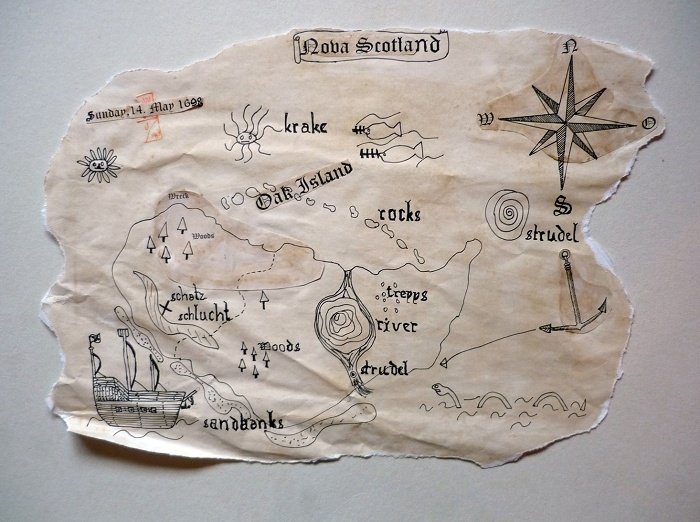 Nova Scotland
Sunday, 14. May 1698
N
W
O
S
krake
Oak Island
rocks
strudel
Wreck
Woods
schatz
schlucht
trepps
river
Woods
strudel
sandbanks